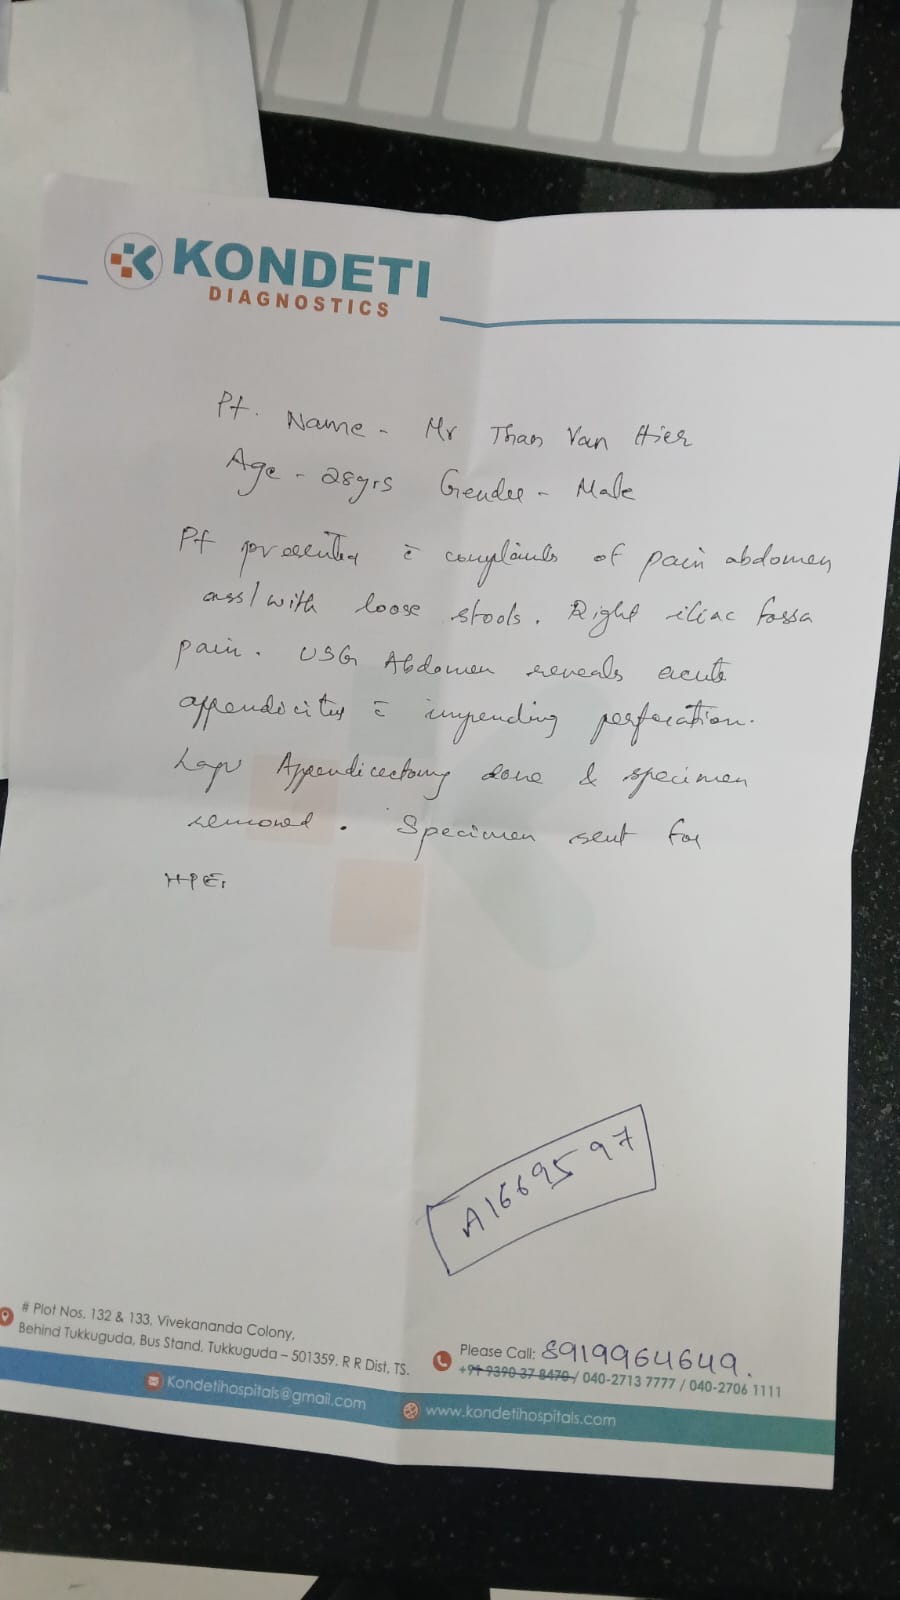 KONDETI
DIAGNOSTICS
Pt. Name - Mr Than Van Hier
Age - 28yrs Gender - Male
Pt presented c̄ complaints of pain abdomen
ass/with loose stools. Right iliac fossa
pain. USG Abdomen reveals acute
appendicitis c̄ impending perforation.
Lap Appendicectomy done & specimen
removed. Specimen sent for
HPE.
A1669597
# Plot Nos. 132 & 133, Vivekananda Colony,
Behind Tukkuguda, Bus Stand, Tukkuguda – 501359. R R Dist, TS.
Please Call: 8919964649.
+91 9390 37 8470 / 040-2713 7777 / 040-2706 1111
Kondetihospitals@gmail.com
www.kondetihospitals.com